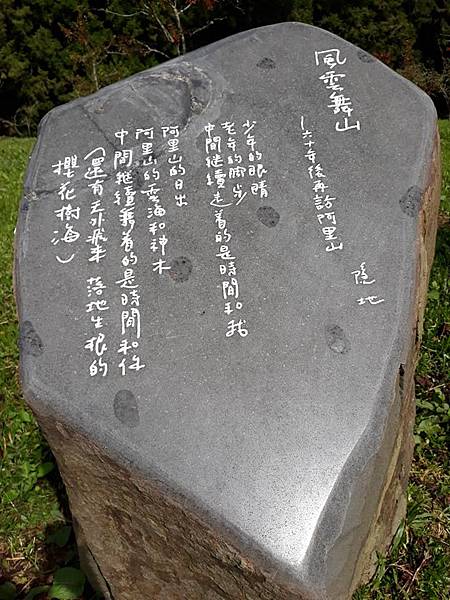 風雲舞山
—六十年後再訪阿里山
隱地
少年的眼睛
老年的腳步
中間継續走着的是時間和我
阿里山的日出
阿里山的雲海和神木
中間継續舞着的是時間和你
（還有天外飛來 落地生根的
櫻花樹海）